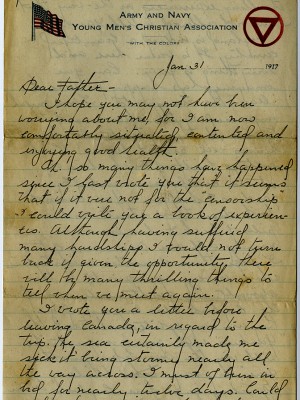 ARMY AND NAVY
YOUNG MEN'S CHRISTIAN ASSOCIATION
"WITH THE COLORS"
Jan. 31 1917
Dear Father -
I hope you may not have been
worrying about me, for I am now
comfortably situated, contented and
enjoying good health.
Oh, so many things have happened
since I last wrote you that it seems
that if it were not for the "censorship"
I could write you a book of experien-
ces. Although having suffered
many hardships I would not turn
back if given the opportunity, there
will be many thrilling things to
tell when we meet again.
I wrote you a letter before
leaving Canada, in regard to the
trip. The sea certainly made me
sick it being stormy nearly all
the way across. I must of been in
bed for nearly twelve days. Could